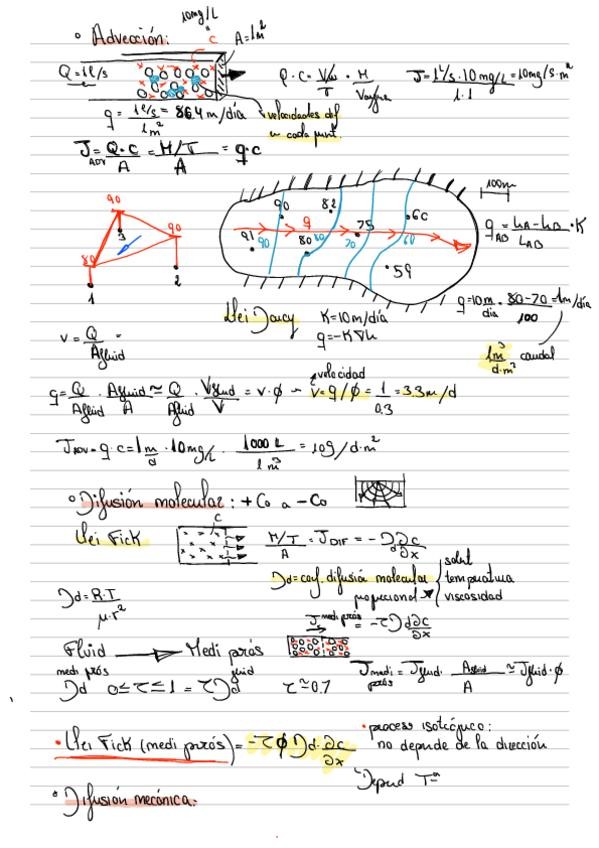 ° Advección:
10mg/L
c
A=1m²
Q=1l/s
Q·c = Vw/T · M/Vaigua
J = 1l/s·10mg/L / 1·1 = 10mg/s·m²
q = 1l/s / 1m² = 86.4 m/día
velocidades dif en cada punt.
J_ADV = Q·C/A = M/T / A = q·c
100m
90
3
90
80
1
2
90
82
60
91
90
q
80
80
75
70
60
59
q_AB = (hA-hB)/LAB · K
Llei Darcy
K=10m/día
q=-K∇h
q=10m/día · 80-70/100 = 1m/día
1m³/d·m² caudal
v = Q/Afluid =
velocidad
q = Q/Afluid · Afluid/A ≃ Q/Afluid · Vfluid/V = v·ϕ → v=q/ϕ = 1/0.3 = 3.3 m/d
J_ADV = q·c = 1m/d · 10mg/L · 1000L/1m³ = 10g/d·m²
° Difusión molecular: +Co a -Co
Llei Fick
c
M/T / A = J_DIF = -Dd ∂c/∂x
Dd = coef. difusión molecular
proporcional
solut
temperatura
viscosidad
Dd = R·T/μ·r²
J medi porós = -τDd ∂c/∂x
Fluid → Medi porós
J medi porós = Jfluid · Afluid/A ≃ Jfluid·ϕ
Dd medi porós 0≤τ≤1 = τDd fluid
τ≃0.7
• Llei Fick (medi porós) = -τϕDd·∂c/∂x
• process isotrópic:
no depende de la dirección
Depend Tª
° Difusión mecánica: